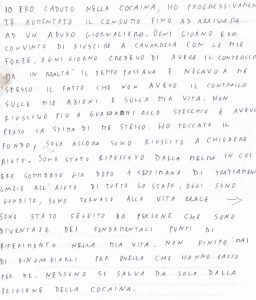 IO ERO CADUTO NELLA COCAINA, HO PROGRESSIVAMEN
TE AUMENTATO IL CONSUMO FINO AD ARRIVARE
AD UN ABUSO GIORNALIERO. OGNI GIORNO ERO
CONVINTO DI RIUSCIRE A CAVARMELA CON LE MIE
FORZE, OGNI GIORNO CREDEVO DI AVERE IL CONTROLLO
IN REALTA' IL TEMPO PASSAVA E NEGAVO A ME
STESSO IL FATTO CHE NON AVEVO IL CONTROLLO
SULLE MIE AZIONI E SULLA MIA VITA. NON
RIUSCIVO PIU A GUARDARMI ALLO SPECCHIO E AVEVO
PERSO LA STIMA DI ME STESSO. HO TOCCATO IL
FONDO, SOLO ALLORA SONO RIUSCITO A CHIEDERE
AIUTO. SONO STATO RIPESCATO DALLA MELMA IN CUI
ERO SOMMERSO GIA DOPO 1 SETTIMANA DI TRATTAMENTO
GRAZIE ALL'AIUTO DI TUTTO LO STAFF, OGGI SONO
GUARITO, SONO TORNATO ALLA VITA REALE →
SONO STATO SEGUITO DA PERSONE CHE SONO
DIVENTATE DEI FONDAMENTALI PUNTI DI
RIFERIMENTO NELLA MIA VITA. NON FINIRO' MAI
DI RINGRAZIARLI PER QUELLO CHE HANNO FATTO
PER ME. NESSUNO SI SALVA DA SOLO DALLA
PRIGIONE DELLA COCAINA.